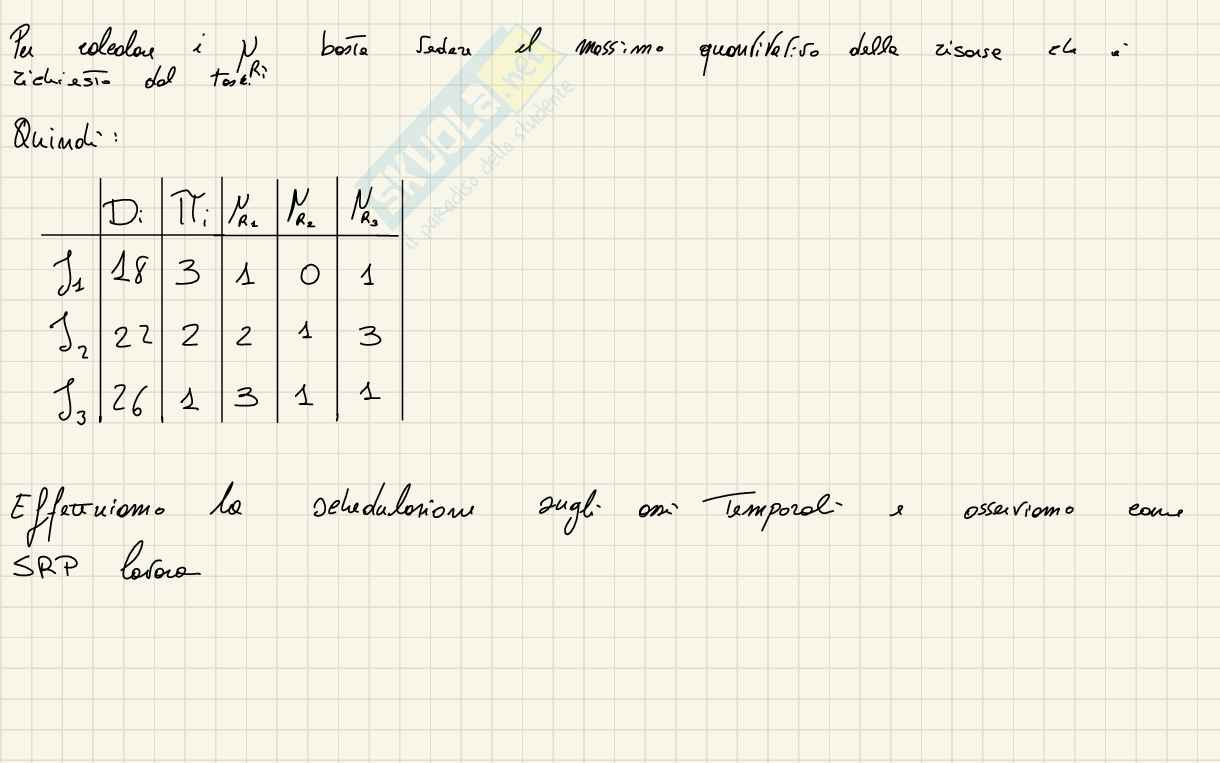 Per calcolare i μ_Ri basta vedere il massimo quantitativo della risorse che è
richiesto dal task.
Quindi:
D_i π_i μ_R1 μ_R2 μ_R3
J_1 18 3 1 0 1
J_2 22 2 2 1 3
J_3 26 1 3 1 1
Effettuiamo la schedulazione sugli assi Temporali e osserviamo come
SRP lavora
SKUOLA.net
il paradiso dello studente